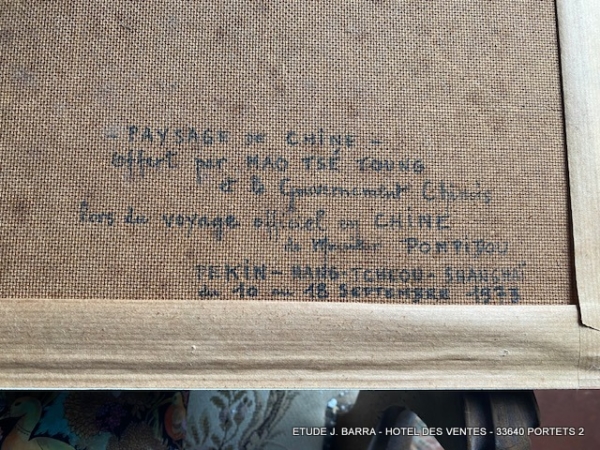 - PAYSAGE DE CHINE -
offert par MAO TSÉ TOUNG
et le Gouvernement Chinois
lors du voyage officiel en CHINE
de Monsieur POMPIDOU
PEKIN - HANG-TCHEOU - SHANGHAÏ
du 10 au 18 SEPTEMBRE 1973
ETUDE J. BARRA - HOTEL DES VENTES - 33640 PORTETS 2